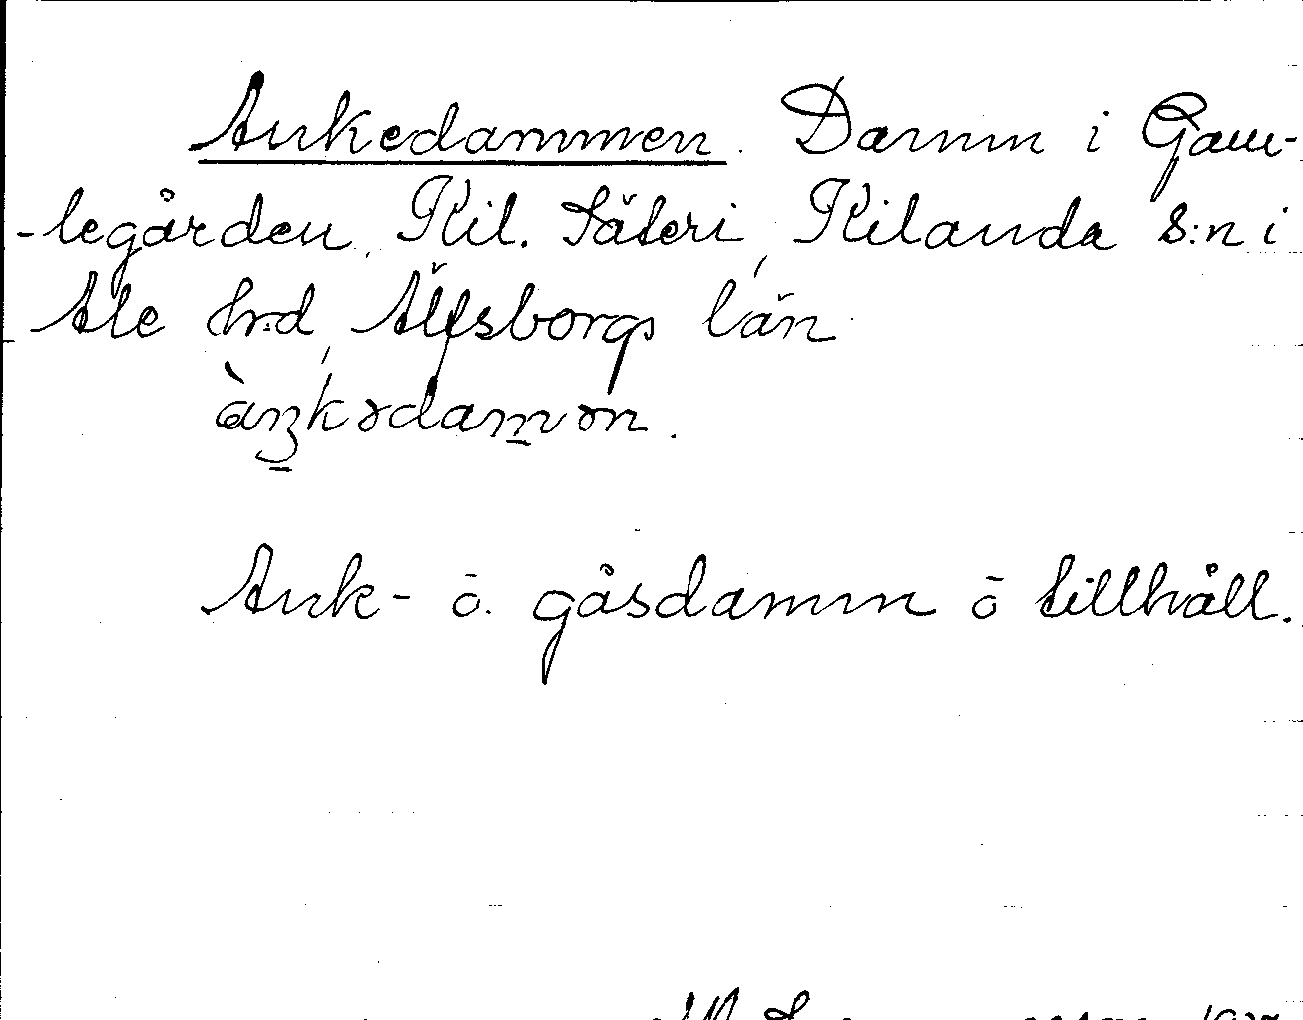 Ankedammen. Damm i Gam-
-legården, Kil. Säteri, Kilanda s:n i
Ale hrd, Älfsborgs län.
àŋkədamən.
Ank- o. gåsdamm o tillhåll.